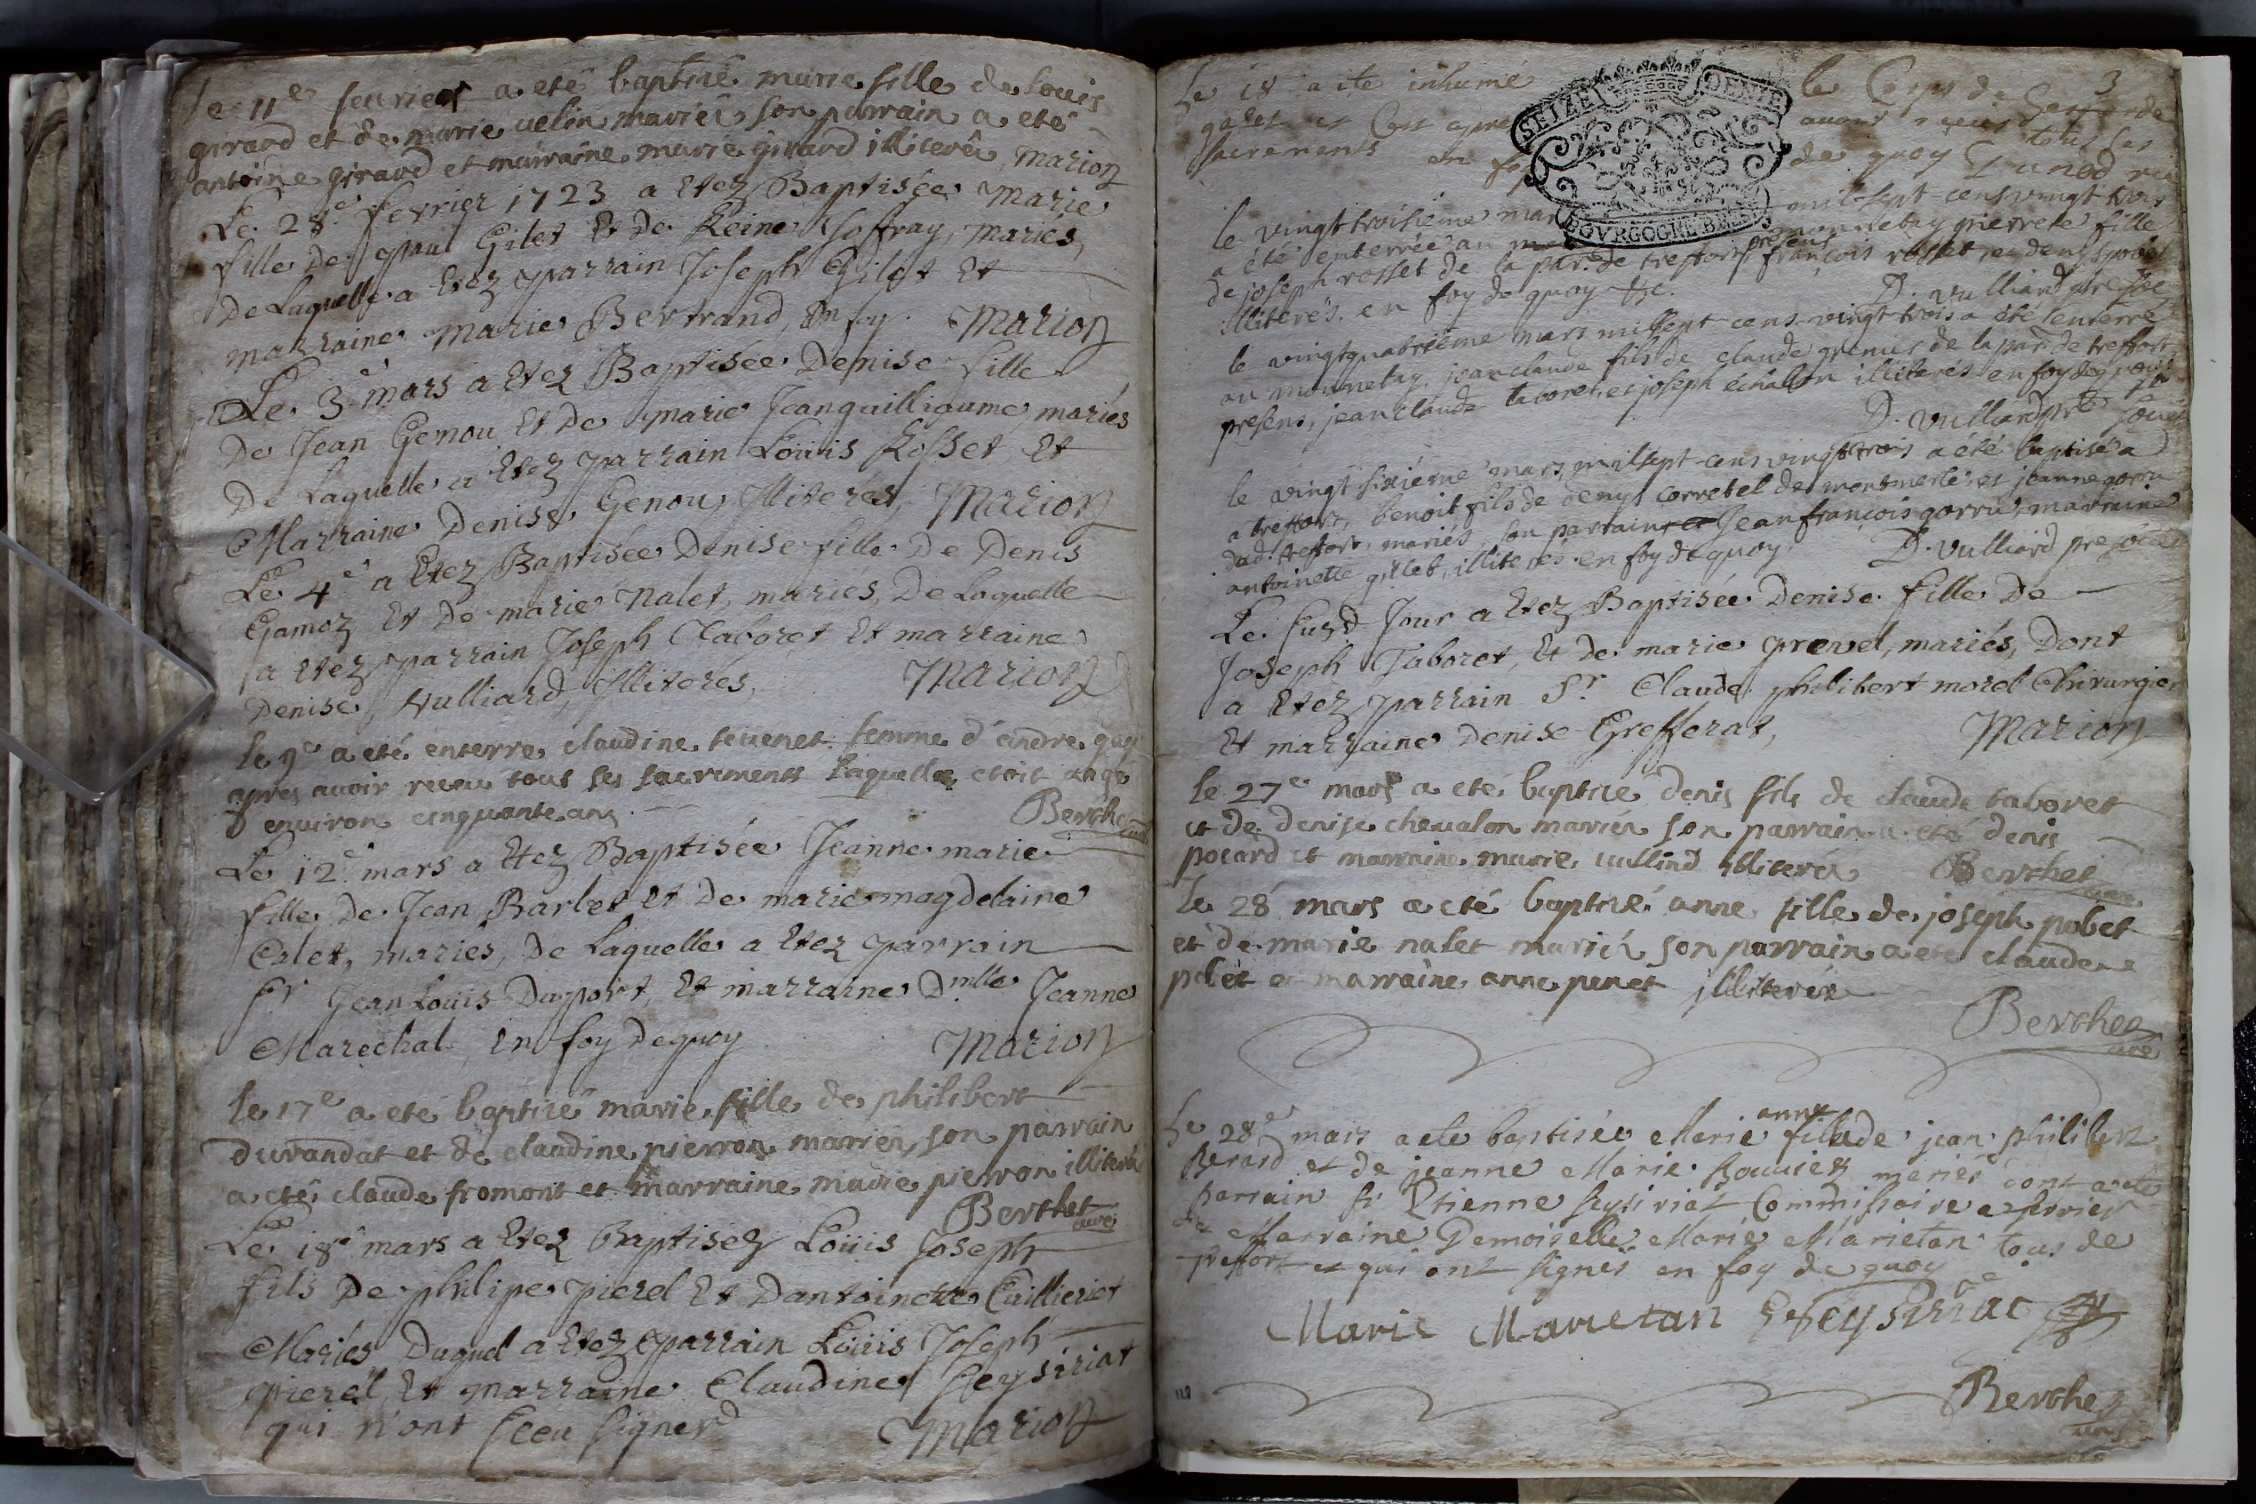 le 11e feurier a eté baptisé marie fille de Louis
girard et de marie uelin mariés son parrain a eté
antoine girard et marraine marie girard illiterés Marion
Le 28e fevrier 1723 a Etez Baptisée Marie
fille De paul Gilet Et De Reine Joffray, mariés,
De Laquelle a Etez parrain Joseph Gilet Et
marraine Marie Bertrand, En foy. Marion
Le 3e mars a Etez Baptisée Denise fille
De Jean Genou Et De marie Jeanguilliaume mariés
De Laquelle a Etez parrain Loüis Rosset Et
Marraine Denise Genou, Illiterés, Marion
Le 4e a Etez Baptisée Denise fille De Denis
Gamoz Et De marie Nalet, mariés, De Laquelle
a Etez parrain Joseph Taboret Et marraine
Denise Vulliard, Illiterés, Marion
le 9e a eté enterre claudine teuenet femme d'andre gay
apres auoir receu tous ses sacrements laquelle etoit agé
d'enuiron cinquante ans Berthet curé
Le 12e mars a Etez Baptisée Jeanne marie
fille De Jean Barlet Et De marie magdelaine
Colet, mariés, De Laquelle a Etez parrain
Sr Jean Louis Duport, Et marraine Dmlle Jeanne
Marechal, En foy Dequoy Marion
le 17e a eté baptisé marie fille de philibert
durandat et de claudine pierron mariés son parrain
a eté claude fromont et marraine marie pierron illiterés
Berthet curé
Le 18e mars a Etez Baptisez Loüis Joseph
fils De philipe pierel Et Dantoinette Cuillieriet
Mariés Duquel a Etez parrain Loüis Joseph
pierel Et marraine Claudine Seysiriat
qui n'ont sceu signer Marion
3
Le 18 a ete inhumé le Corps de
galet et Cest apres auoir receu tous ses
sacrements en foy de quoy
SEIZE DENIE
BOVRGOGNE BRESS
le vingt troisieme mars mil sept cens vingt trois
a été enterrée au monnetay pierrete fille
de joseph rosset de la par. de treffort presens françois rosset et denys
illiterés. en foy de quoy &c. D. Vulliard pre
le vingtquatrieme mars mil sept cens vingt trois a été enterré
au monnetay, jean claude fils de claude grenier de la par. de treffort
presens, jean claude taboret, et joseph échalon illiterés en foy de quoy
D. Vulliard pre
le vingt sixiéme mars, mil sept cens vingt trois a été baptisé a
a treffort, benoit fils de denys corretel de montmerle et jeanne gorru
dud. treffort, mariés, son parrain Jean françois gorru, marraine
antoinette gillet, illiteres. en foy de quoy D. Vulliard pre
Le Susd Jour a Etez Baptisée Denise fille De
Joseph Taboret, Et de marie grevel, mariés, Dont
a Etez parrain Sr Claude philibert morel Chirurgien
Et marraine Denise Grefferat, Marion
le 27e mars a eté baptisé denis fils de claude taboret
et de denise cheualon mariés son parrain a eté denis
pocard et marraine marie uulliard illiterés Berthet curé
le 28 mars a eté baptisé anne fille de joseph pobet
et de marie nalet mariés son parrain a eté claude
pobet et marraine anne penet illiterés
Berthet curé
Le 28e mars a ete baptisée Marie anne fille de jean philibert
Berard et de jeanne Marie Bouuier mariés dont a ete
parrain sr Etienne Seysiriat Commissaire a terrier
et Marraine Demoiselle Marie Marietan tous de
treffort et qui ont signés en foy de quoy
Marie Marietan E Seysiriat
Berthet curé